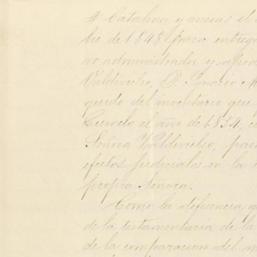 á Catalina, y anexas el
de 1848 fueron entregad
no administrador y apode
Valdivielso, D. Ignacio
quedó del inventario que
Cuevedo el año de 1834,
Señora Valdivielso, para
efectos judiciales en la
propia Señora.
Como la diferencia q
de la testamentaria de la
de la comparacion del